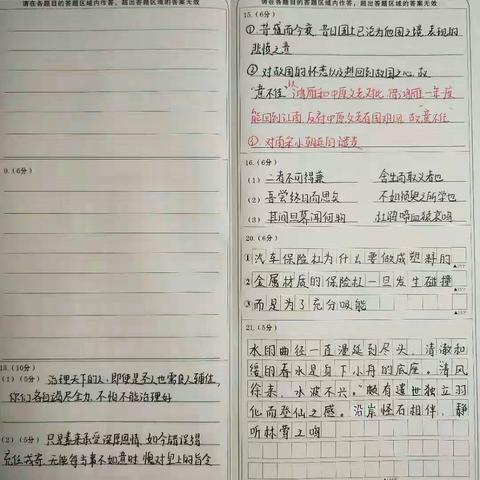 请在各题目的答题区域内作答，超出答题区域的答案无效
9.(6分)
13.(10分)
(1)(5分) 治理天下的人，即使是圣人也需良人辅佐，
你们各自竭尽全力，不怕不能治理好
(2)(5分) 只是素来承受深厚恩情，如今错误得
请在各题目的答题区域内作答，超出答题区域的答案无效
15.(6分)
① 昔盛而今衰，昔日国土已沦为他国之境，表现的
悲愤之意
② 对故国的怀恋以及想回到故国之心，故
"意不住"，鸿雁和中原父老对比，得鸿雁一年一度
能回到江南，反衬中原父老有国难回，故"意不住"
③ 对南宋小朝廷的谴责
16.(6分)
(1) 二者不可得兼 舍生而取义者也
(2) 吾尝终日而思矣 不如须臾之所学也
(3) 其间旦暮闻何物 杜鹃啼血猿哀鸣
20.(6分)
①汽车保险杠为什么要做成塑料的
②金属材质的保险杠一旦发生碰撞
③而是为了充分吸能
21.(5分)
水的曲径一直漫延到尽头，清澈和
缓的春水是身下小舟的底座。清风
徐来，水波不兴。颇有遗世独立羽
化而登仙之感。沿岸怪石相伴，静
听林莺之鸣